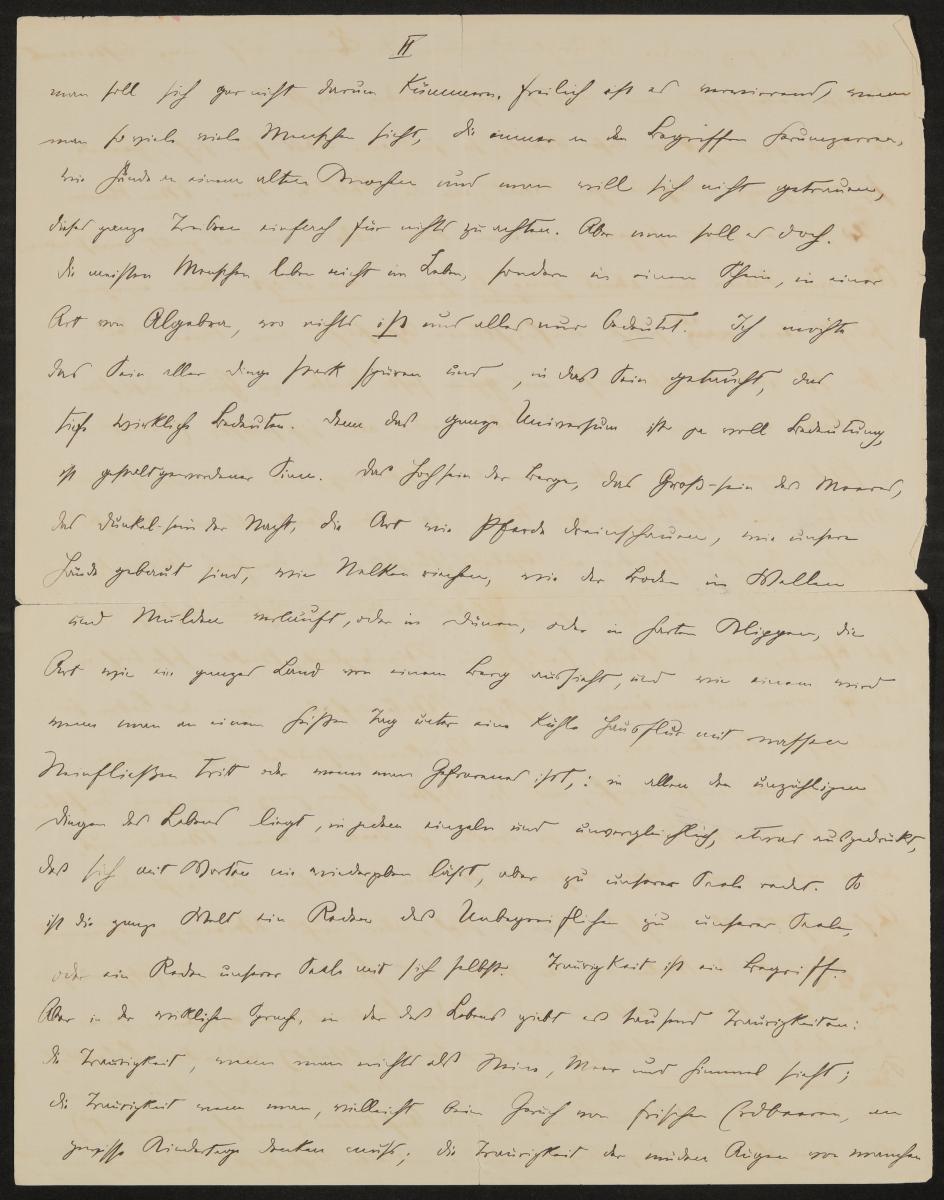 II
man soll sich gar nicht darum kümmern. freilich ist es verwirrend, wenn
man so viele viele Menschen sieht, die immer an den Begriffen herumzerren,
wie Hunde an einem alten Knochen und man will sich nicht getrauen,
dieses ganze Treiben einfach für nichts zu achten. Aber man soll es doch.
die meisten Menschen leben nicht im Leben, sondern in einem Schein, in einer
Art von Algebra, wo nichts ist und alles nur bedeutet. Ich möchte
das Sein aller Dinge stark spüren und, in das Sein getaucht, das
tiefe wirkliche Bedeuten. denn das ganze Universum ist ja voll Bedeutung,
ist gestaltgewordener Sinn. das Hochsein der Berge, das Groß-sein des Meeres,
das dunkel-sein der Nacht, die Art wie Pferde dreinschauen, wie unsere
Hände gebaut sind, wie Nelken riechen, wie der Boden in Wellen
und Mulden verläuft, oder in Dünen, oder in harten Klippen, die
Art wie ein ganzes Land von einem Berg aussieht, und wie einem wird
wenn man an einem heißen Tag unter eine kühle Hausflur mit nassen
Steinfließen tritt oder wenn man Gefrorenes isst,: in allen den unzähligen
dingen des Lebens liegt, in jedem einzeln und unvergleichlich, etwas ausgedrückt,
das sich mit Worten nie wiedergeben läßt, aber zu unserer Seele redet. So
ist die ganze Welt ein Reden des Unbegreiflichen zu unserer Seele,
oder ein Reden unserer Seele mit sich selbst. Traurigkeit ist ein Begriff.
Aber in der wirklichen Sprache, in der des Lebens giebt es tausend Traurigkeiten:
die Traurigkeit, wenn man nichts als Steine, Meer und Himmel sieht;
die Traurigkeit wenn man, vielleicht beim Geruch von frischen Erdbeeren, an
gewisse Kindertage denken muß; die Traurigkeit der müden Augen von manchen